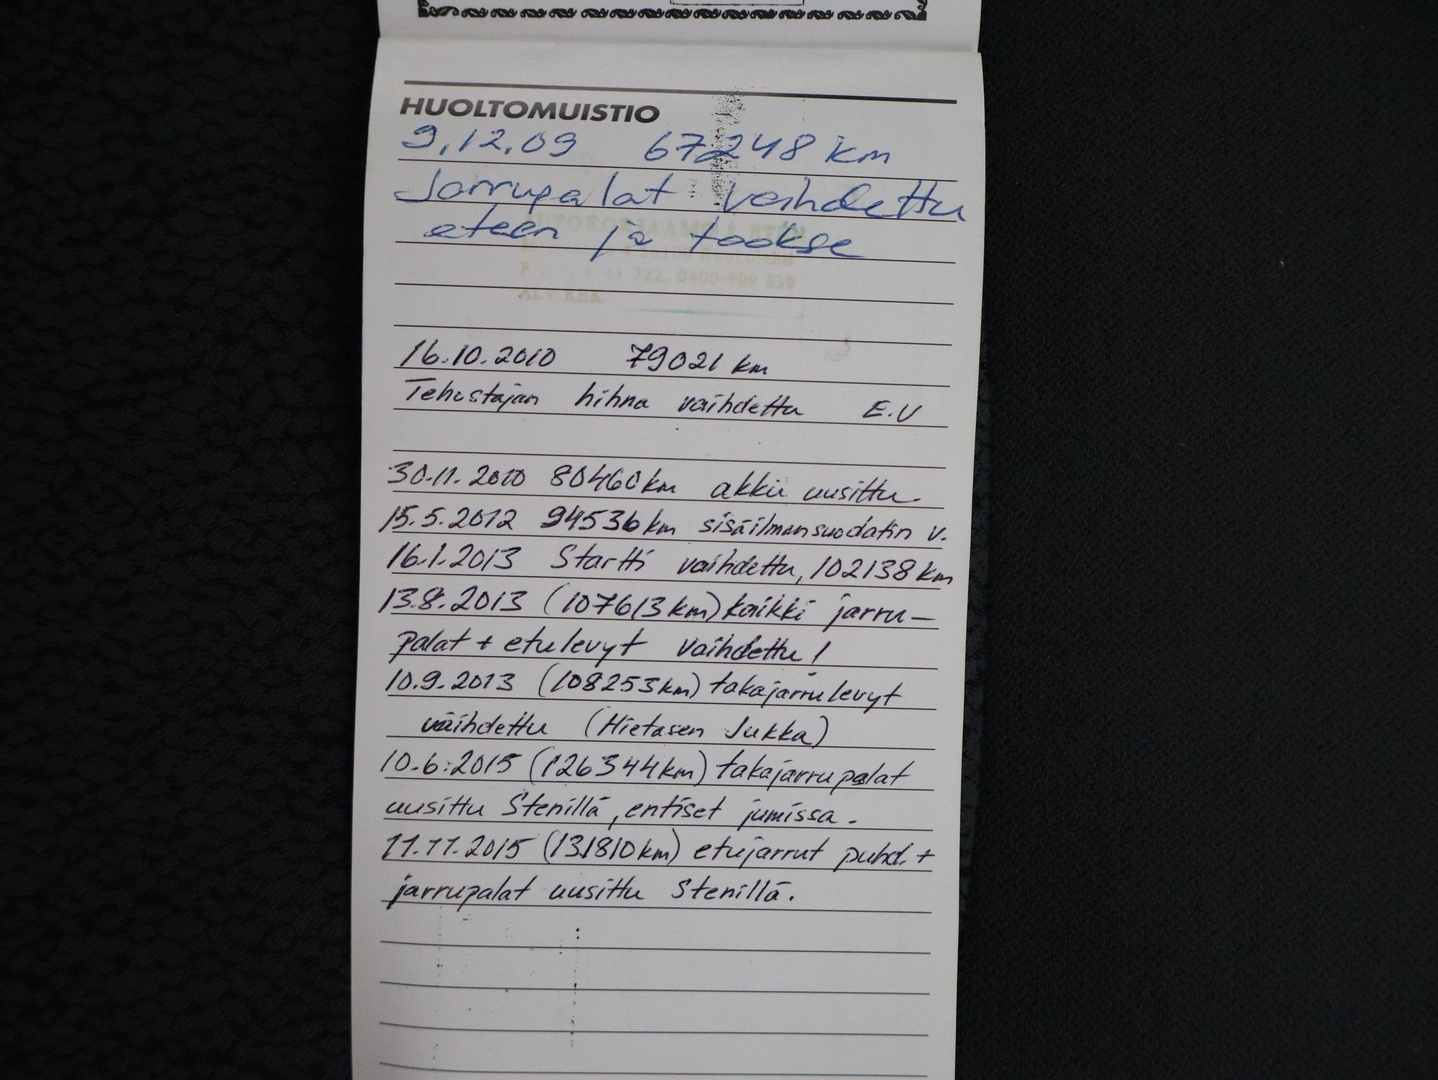 HUOLTOMUISTIO
9.12.09 67248 km
Jarrupalat vaihdettu
eteen ja taakse
AUTOKORJAAMO
722, 0400-909 839
ALV REK
16.10.2010 79021 km
Tehostajan hihna vaihdettu E.V
30.11.2010 80460km akku uusittu.
15.5.2012 94536km sisäilmansuodatin v.
16.1.2013 Startti vaihdettu, 102138 km
13.8.2013 (107613km) kaikki jarru-
palat + etulevyt vaihdettu!
10.9.2013 (108253km) takajarrulevyt
vaihdettu (Hietasen Jukka)
10.6.2015 (126344km) takajarrupalat
uusittu Stenillä, entiset jumissa.
11.11.2015 (131810km) etujarrut puhd. +
jarrupalat uusittu Stenillä.